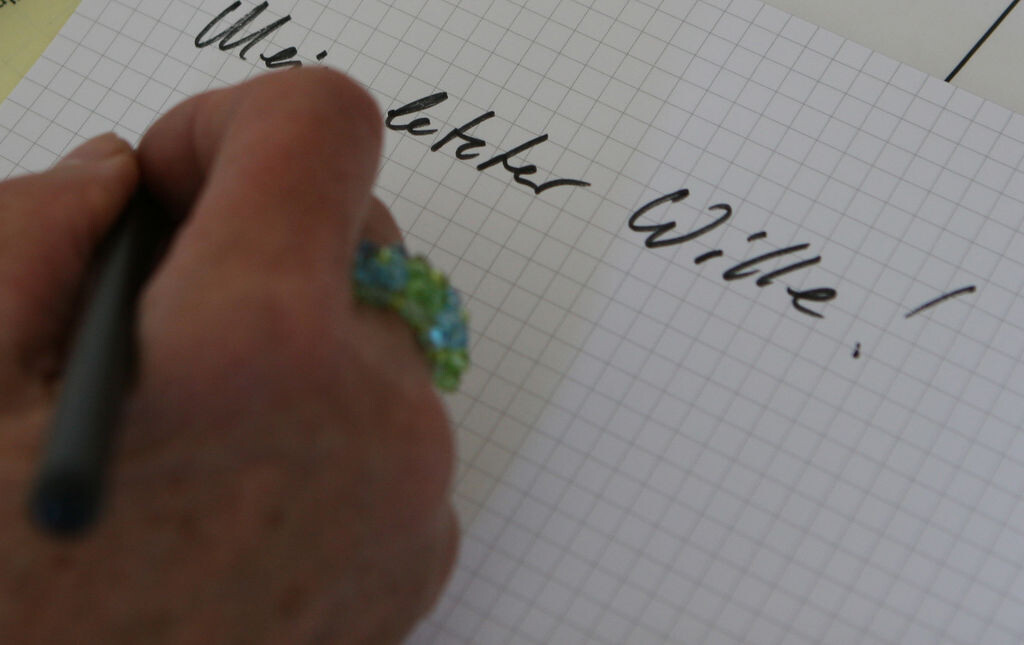 Mein letzter Wille!